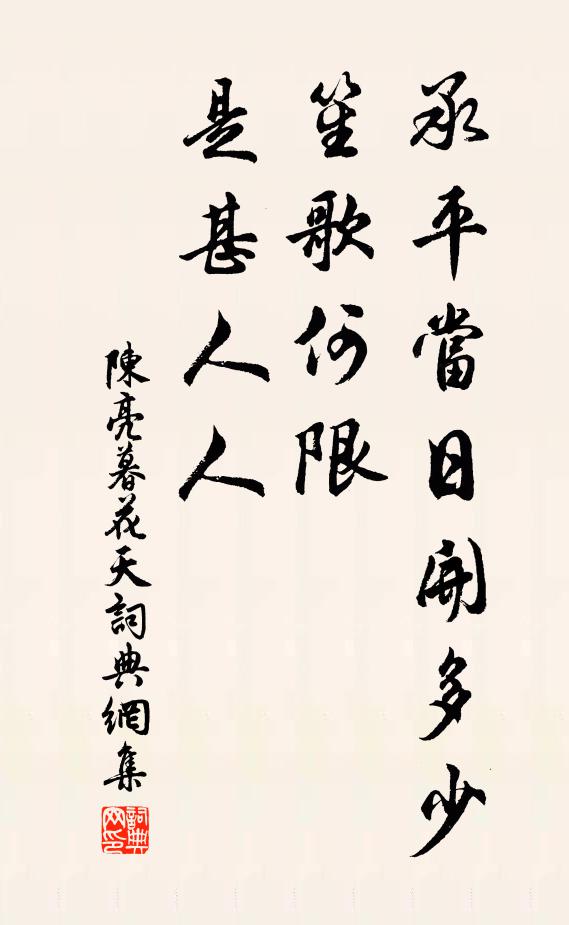 承平當日開多少
笙歌何限
是甚人人
陳亮暮花天詞典網集
詞典网印